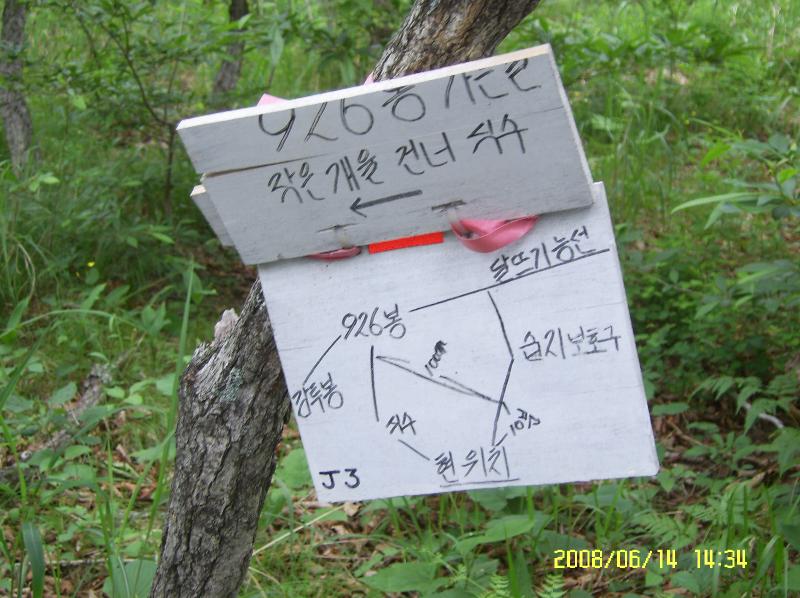 926봉 가는길
작은개울 건너 식수
달뜨기능선
926봉
100m
습지보호구
감투봉
식수
현위치
J3
2008/06/14 14:34